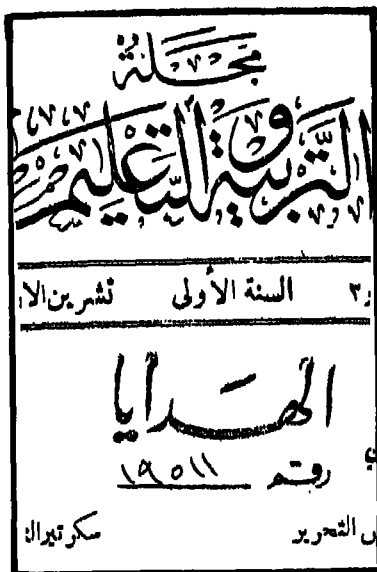 مجلة
التربية والتعليم
٣ السنة الأولى تشرين الا
الهدايا
رقم ١٩٥١١
التحرير سكرتيرا